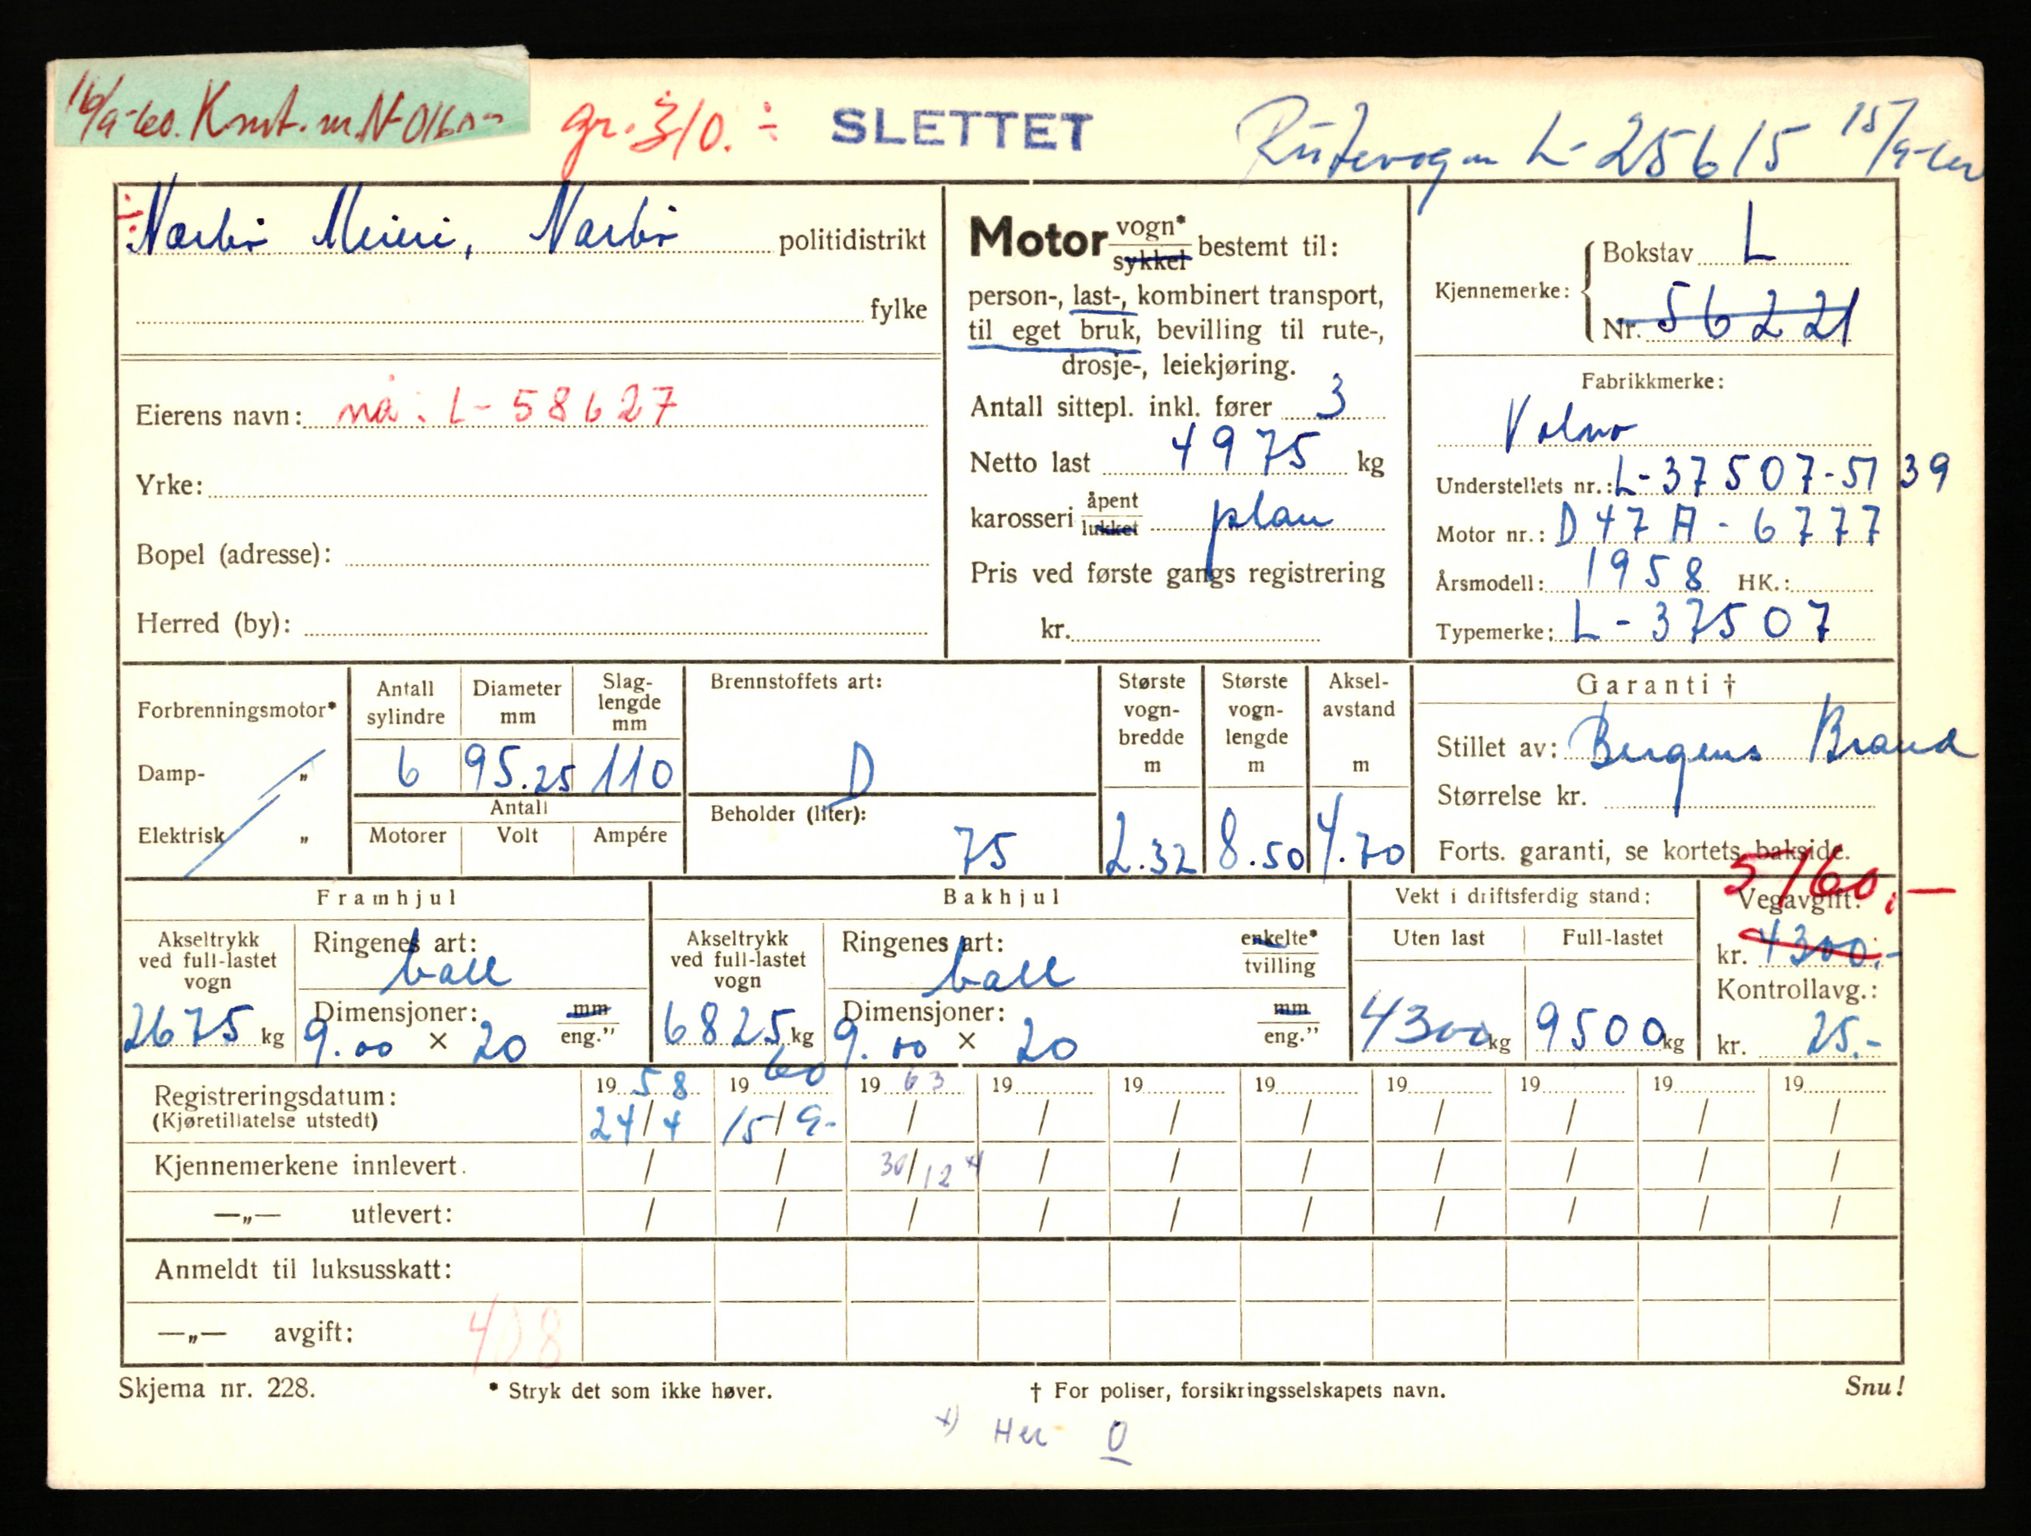 16/9-60. Kmt. m. N-0160-
gr. 310. ÷ SLETTET
Rutevogn L-25615 15/9-60
Nærbø Meieri, Nærbø politidistrikt
fylke
Eierens navn: nå: L-58627
Yrke:
Bopel (adresse):
Herred (by):
Motor vogn* sykkel bestemt til:
person-, last-, kombinert transport,
til eget bruk, bevilling til rute-,
drosje-, leiekjøring.
Antall sittepl. inkl. fører 3
Netto last 4975 kg
karosseri åpent lukket plan
Pris ved første gangs registrering
kr.
Kjennemerke: Bokstav L
Nr. 56221
Fabrikkmerke:
Volvo
Understellets nr.: L-37507-5139
Motor nr.: D47A-6777
Årsmodell: 1958 HK.:
Typemerke: L-37507
Forbrenningsmotor*
Damp- „
Elektrisk „
Antall sylindre
Diameter mm
Slaglengde mm
6 95.25 110
Antall
Motorer Volt Ampére
Brennstoffets art:
D
Beholder (liter):
75
Største vognbredde m
2.32
Største vognlengde m
8.50
Akselavstand m
4.70
Garanti †
Stillet av: Bergens Brand
Størrelse kr.
Forts. garanti, se kortets bakside.
Framhjul
Akseltrykk ved full-lastet vogn
2675 kg
Ringenes art:
ball
Dimensjoner: mm eng.”
9.00 × 20
Bakhjul
Akseltrykk ved full-lastet vogn
6825 kg
Ringenes art: enkelte* tvilling
ball
Dimensjoner: mm eng.”
9.00 × 20
Vekt i driftsferdig stand:
Uten last Full-lastet
4300 kg 9500 kg
5160,-
Vegavgift:
kr. 4300.-
Kontrollavg.:
kr. 25.-
Registreringsdatum: 1958 1960 1963 19 19 19 19 19 19 19
(Kjøretillatelse utstedt) 24/4 15/9- / / / / / / / /
Kjennemerkene innlevert. / / 30/12 x) / / / / / / /
—„— utlevert: / / / / / / / / / /
Anmeldt til luksusskatt:
—„— avgift: 408
Skjema nr. 228. * Stryk det som ikke høver. † For poliser, forsikringsselskapets navn. Snu!
x) Her 0